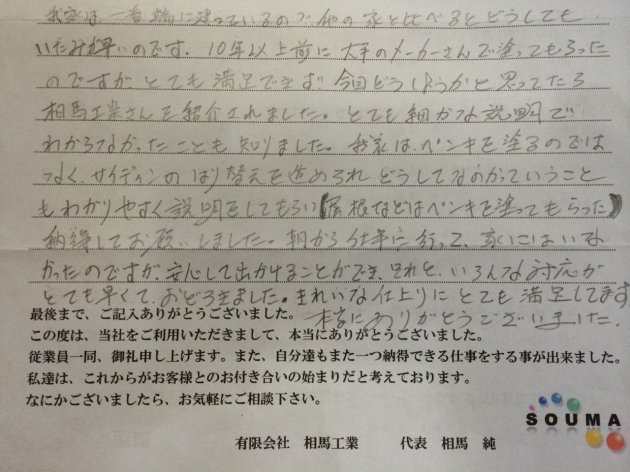 我家は、一番端に建っているので他の家と比べるとどうしても
いたみが早いのです。10年以上前に大手のメーカーさんで塗ってもらった
のですが、とても満足できず今回どうしようかと思ってたら
相馬工業さんを紹介されました。とても細かな説明で
わからなかったことも知りました。我家は、ペンキを塗るのでは
なく、サイディングのはり替えを進められどうしてなのかっていうこと
もわかりやすく説明をしてもらい(屋根などはペンキを塗ってもらった)
納得してお願いしました。朝から仕事に行って、家にはいな
かったのですが、安心して出かけることができ、それと、いろんな対応が
とても早くて、おどろきました。きれいな仕上りにとても満足してます
本当にありがとうございました。
最後まで、ご記入ありがとうございました。
この度は、当社をご利用いただきまして、本当にありがとうございました。
従業員一同、御礼申し上げます。また、自分達もまた一つ納得できる仕事をする事が出来ました。
私達は、これからがお客様とのお付き合いの始まりだと考えております。
なにかございましたら、お気軽にご相談下さい。
SOUMA
有限会社 相馬工業 代表 相馬 純